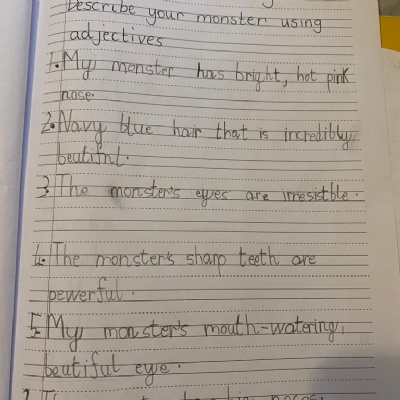 Describe your monster using
adjectives
1. My monster has bright, hot pink
nose.
2. Navy blue hair that is incredibly
beutiful.
3 The monster's eyes are irresistble.
4. The monster's sharp teeth are
pewerful.
5. My monster's mouth-watering,
beutiful eye.